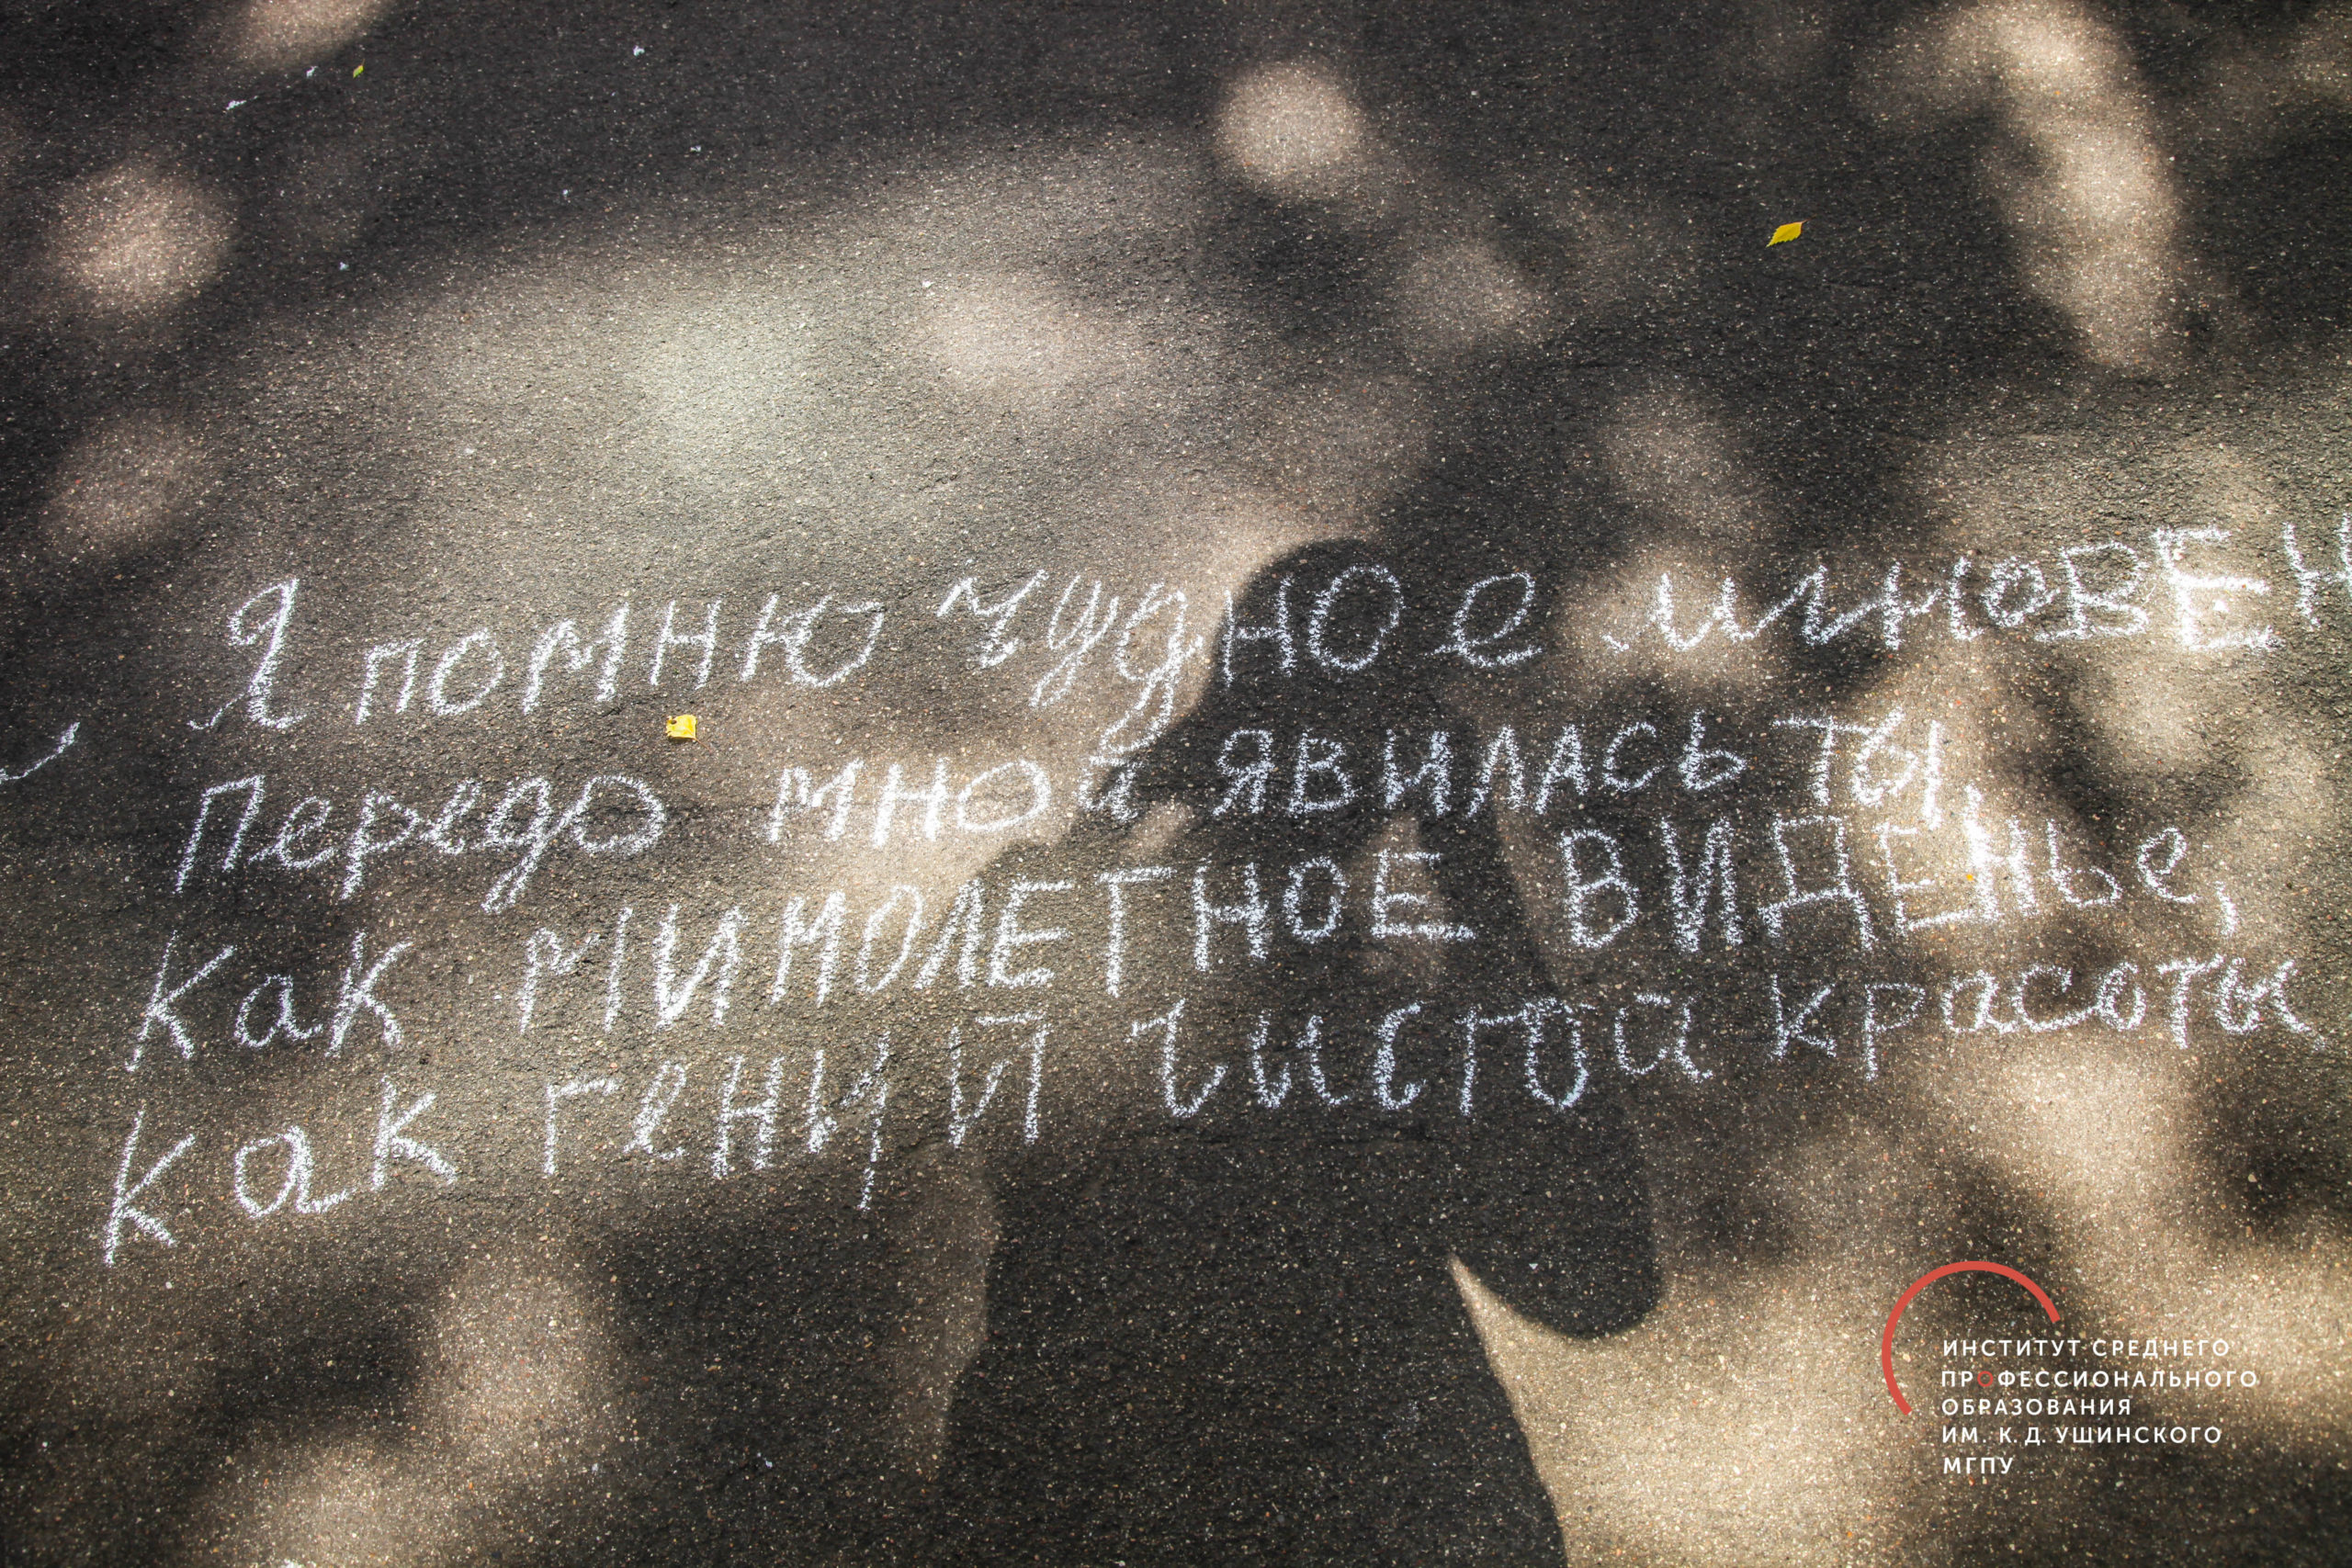 Я помню чудное мгновЕН
Передо мной явилась ты,
Как МИМОЛЕТНОЕ ВИДЕНье,
Как гений чистой красоты
ИНСТИТУТ СРЕДНЕГО
ПРОФЕССИОНАЛЬНОГО
ОБРАЗОВАНИЯ
ИМ. К. Д. УШИНСКОГО
МГПУ